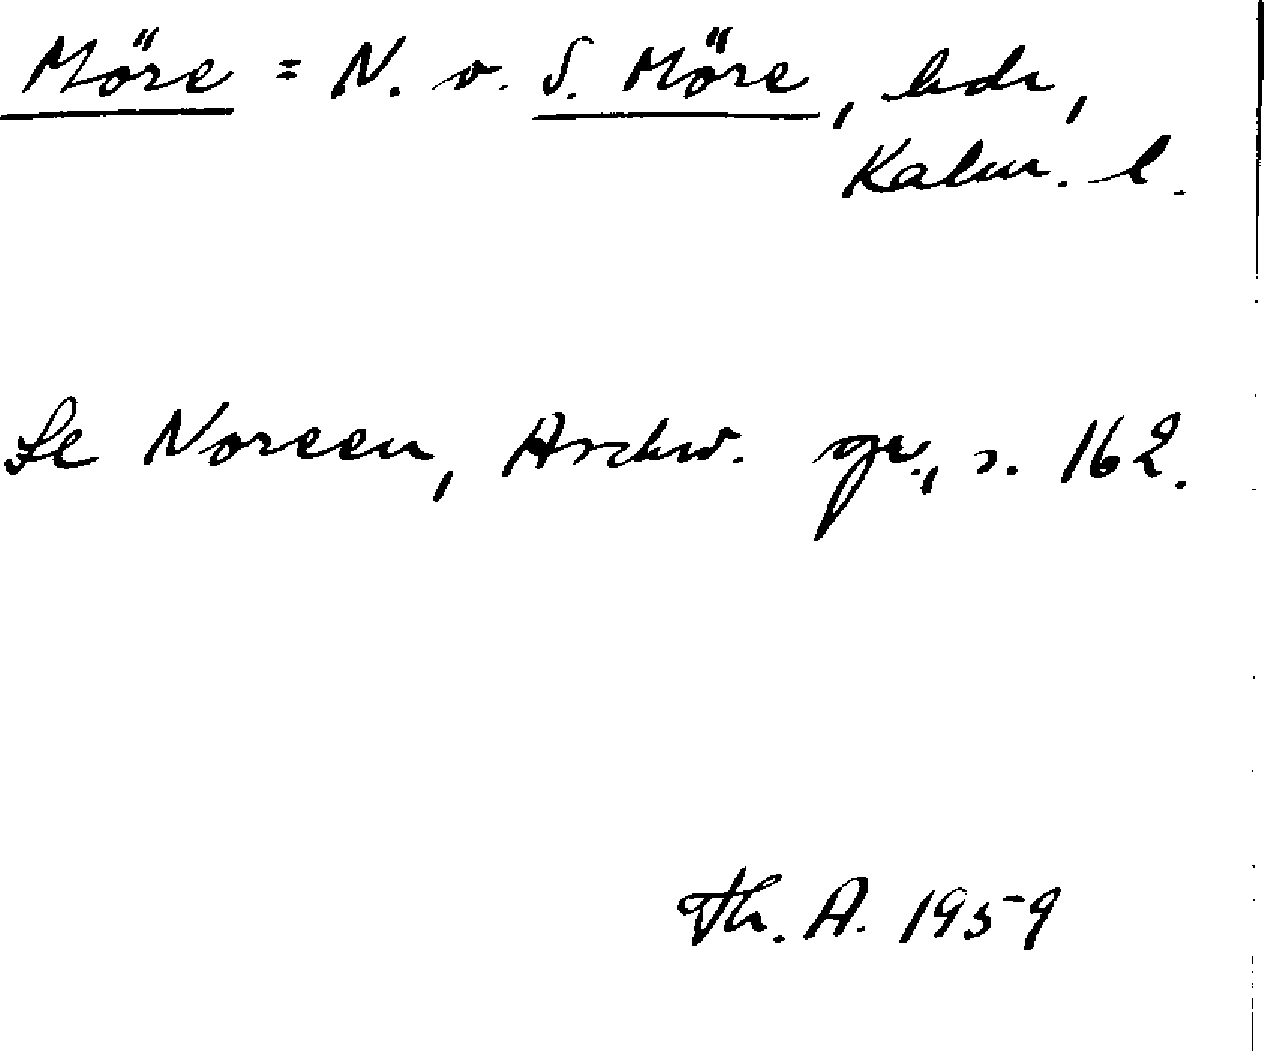 Möre = N. o. S. Möre, hdr,
Kalm. l.
Se Noreen, Aschw. gr., s. 162.
Th. A. 1959